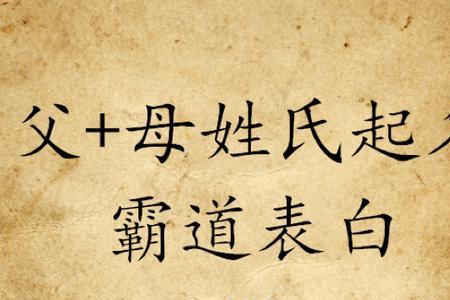 父+母姓氏起
霸道表白